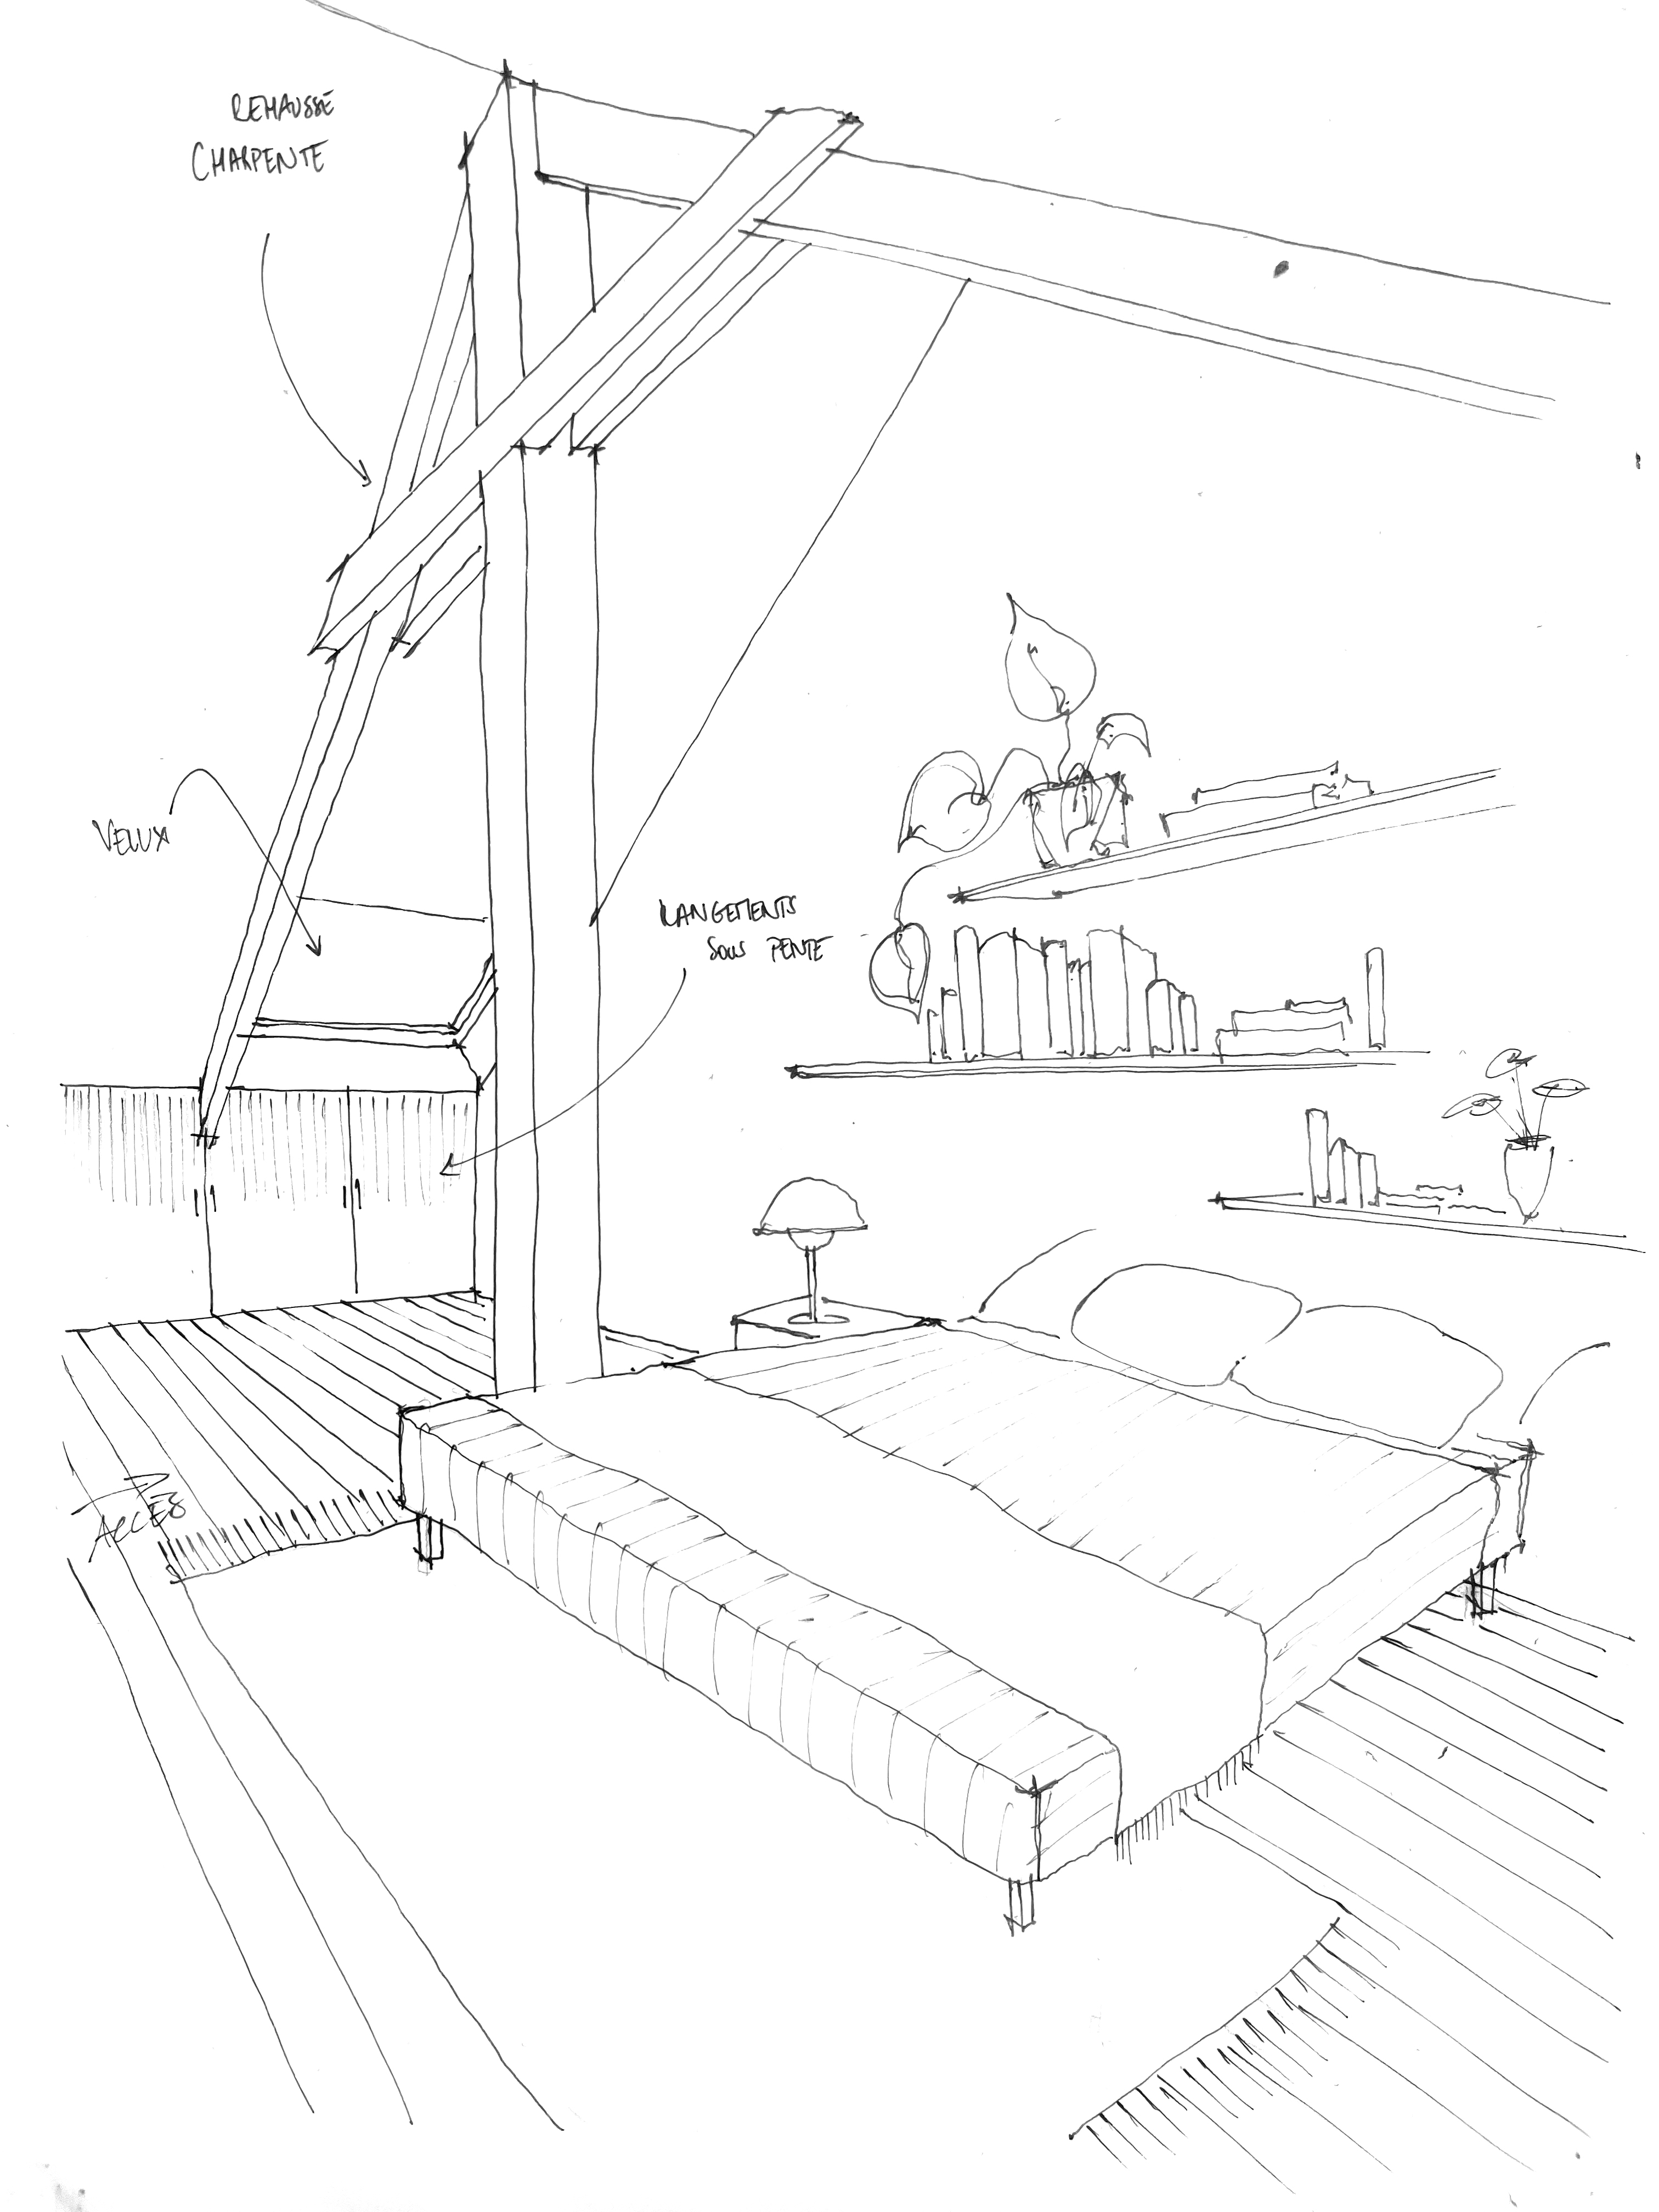 REHAUSSE
CHARPENTE
VELUX
RANGEMENTS
SOUS PENTE
ACCÈS